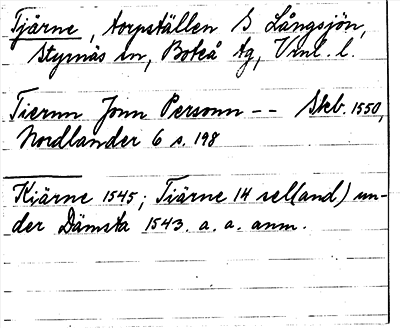 Tjärne, torpställen S Långsjön,
Styrnäs sn, Boteå tg, Vnl. l.
Tiernn Jonn Personn -- Skb. 1550,
Nordlander 6 s. 198
Kiärne 1545; Tiärne 14 sel(and) un-
der Dämsta 1543. a. a. anm.